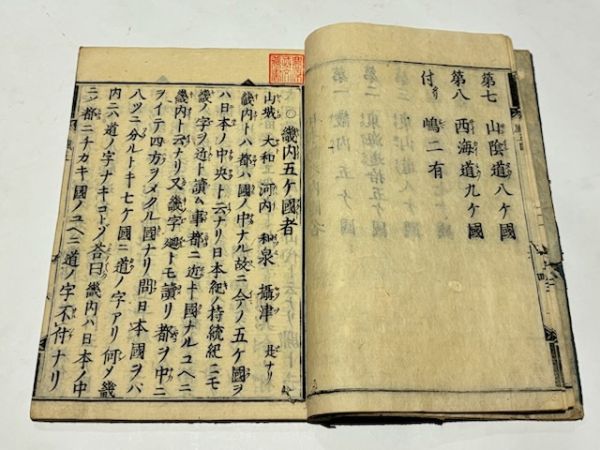 第七 山陰道八ケ國
第八 西海道九ケ國
付 嶋二有
○畿内五ケ國者
山城 大和 河内 和泉 攝津 是ナリ
畿内トハ都ハ國ノ中ナル故ニ今ノ五ケ國ヲ
ハ日本ノ中央ト云ナリ日本紀ノ持統紀ニモ
畿ノ字ヲ近ト讀ム事都ニ近キ國ナルユヘニ
畿内ト云ナリ又畿字廻トモ讀リ都ヲ中ニ
ヲイテ四方ヲメクル國ナリ問日本國ヲバ
八ツニ分ルトキ七ケ國ニ道ノ字アリ何ソ畿
内ニハ道ノ字ナキコトゾ答曰畿内ハ日本ノ中
ニノ都ニチカキ國ノユヘニ道ノ字不付ナリ